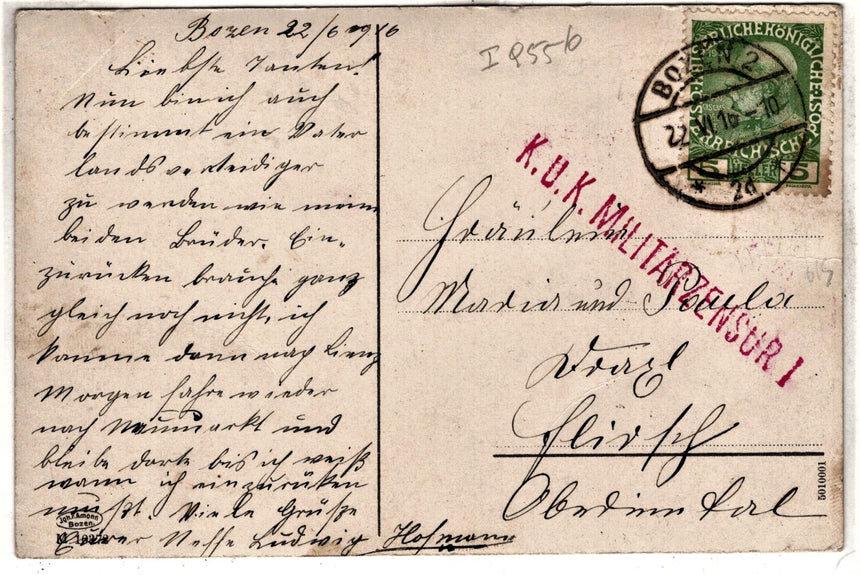 Bozen 22/6 1916
Liebste Tanten!
Nun bin ich auch
bestimmt ein Vater
landsverteidiger
zu werden wie meine
beiden Brüder. Ein-
zurücken brauche ganz
gleich noch nicht, ich
komme dann nach Lienz
Morgen fahre wieder
nach Neumarkt und
bleibe dorte bis ich weiß
wann ich einzurüken
muß. Viele Grüße
Euerer Neffe Ludwig Hofmann
Joh. F. Amonn
Bozen.
I 955-b
BOZEN 2
22 VI 16 - 10
* 2d
5 HELLER 5
K.U.K. MILITÄRZENSUR I
Fräulein
Maria und Paula
Draxl
Flirsch
Oberinntal
5010001